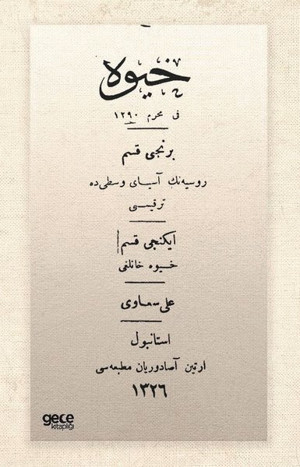 خیوه
فی محرم ١٢٩٠
برنجی قسم
روسیه‌نك آسیای وسطی‌ده
ترقیسی
ایکنجی قسم
خیوه خانلغی
علی سعاوی
استانبول
ارتین آصادوریان مطبعه‌سی
١٣٢٦
gece
kitaplığı